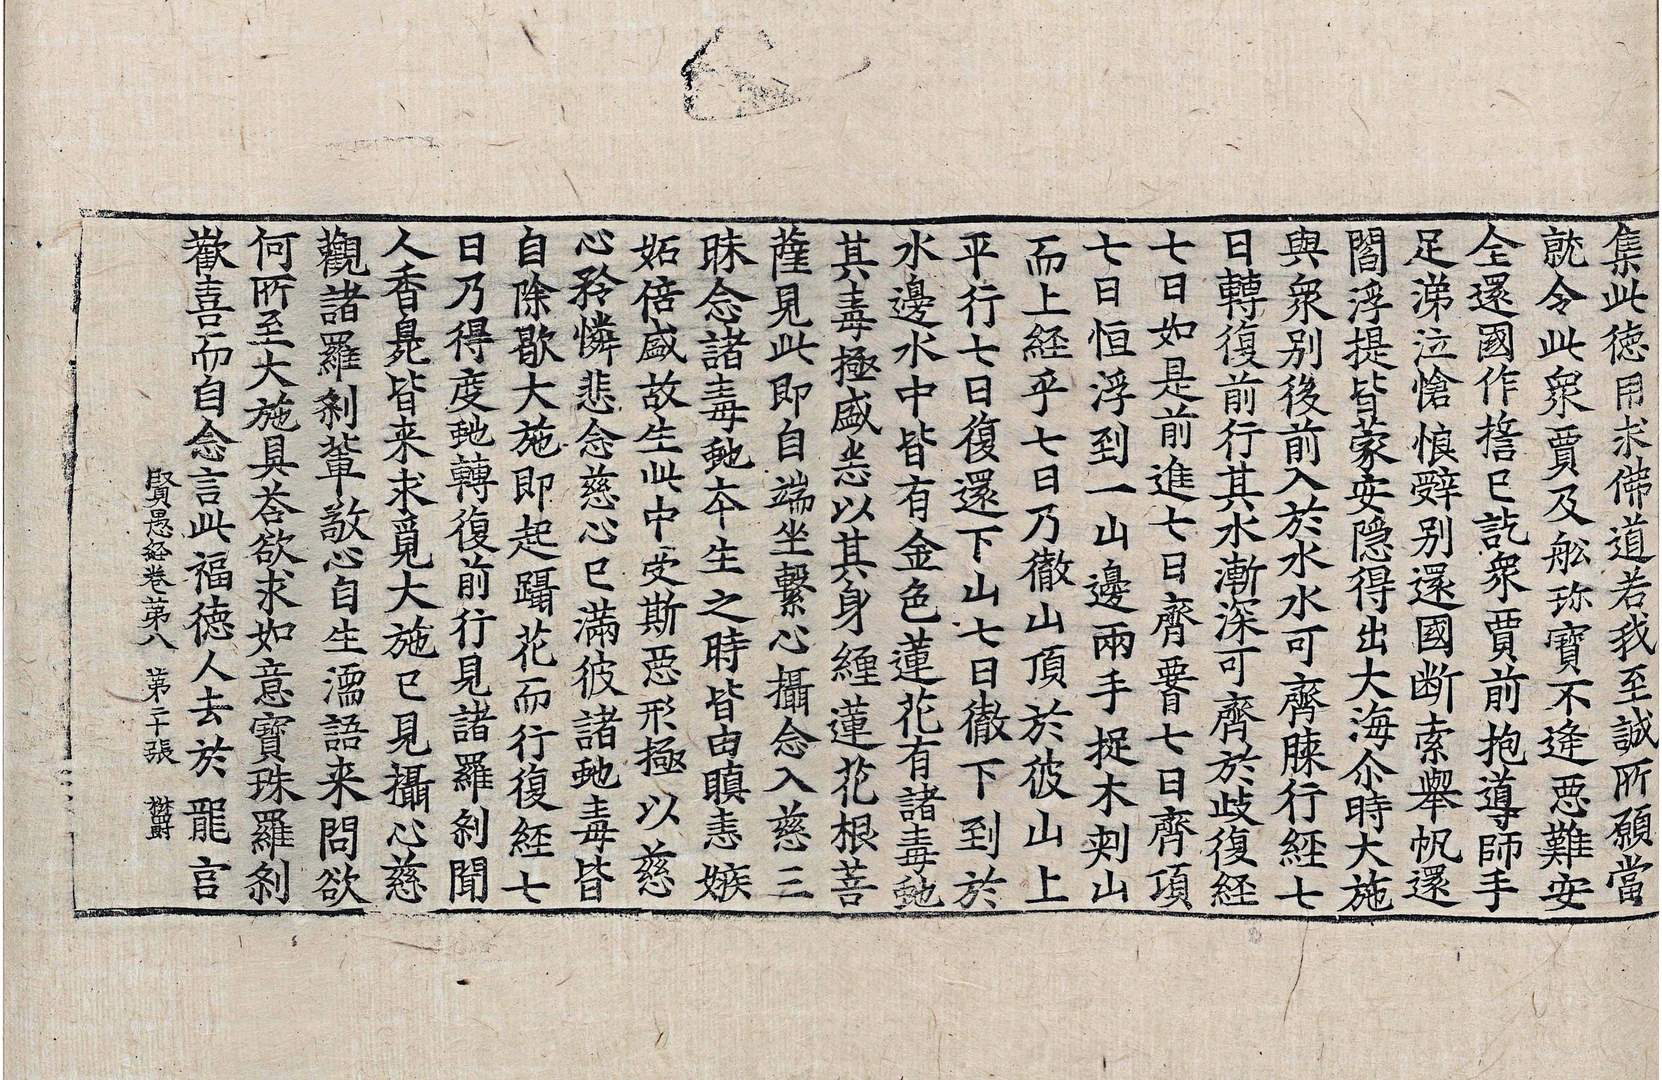 集此德用求佛道若我至誠所願當
就令此衆賈及舩珎寶不逢惡難安
全還國作擔已訖衆賈前抱導師手
足涕泣愴悢辭別還國断索舉帆還
閻浮提皆蒙安隠得出大海尒時大施
與衆別後前入於水水可齊膝行経七
日轉復前行其水漸深可齊於歧復経
七日如是前進七日齊䏶七日齊項
七日恒浮到一山邊兩手捉木刾山
而上経乎七日乃徹山頂於彼山上
平行七日復還下山七日徹下到於
水邊水中皆有金色蓮花有諸毒虵
其毒極盛悉以其身纏蓮花根菩
薩見此即自端坐繫心攝念入慈三
昧念諸毒虵夲生之時皆由瞋恚嫉
妬倍盛故生此中受斯惡形極以慈
心矜憐悲念慈心已滿彼諸虵毒皆
自除歇大施即起躡花而行復経七
日乃得度虵轉復前行見諸羅刹聞
人香臰皆来求覓大施已見攝心慈
觀諸羅刹軰敬心自生濡語来問欲
何所至大施具荅欲求如意寶珠羅刹
歡喜而自念言此福德人去於龍宮
賢愚経卷苐八　苐二十張　樊爵